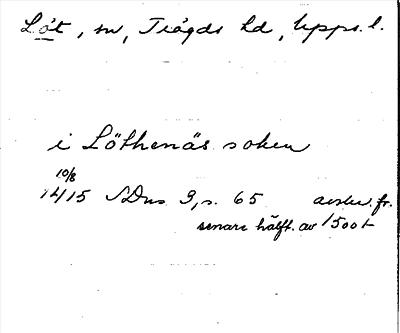 Löt, sn, Trögds hd, Upps. l.
i Löthenäs soken
10/8
1415 SDns 3, s. 65 avskr. fr.
senare hälft. av 1500t